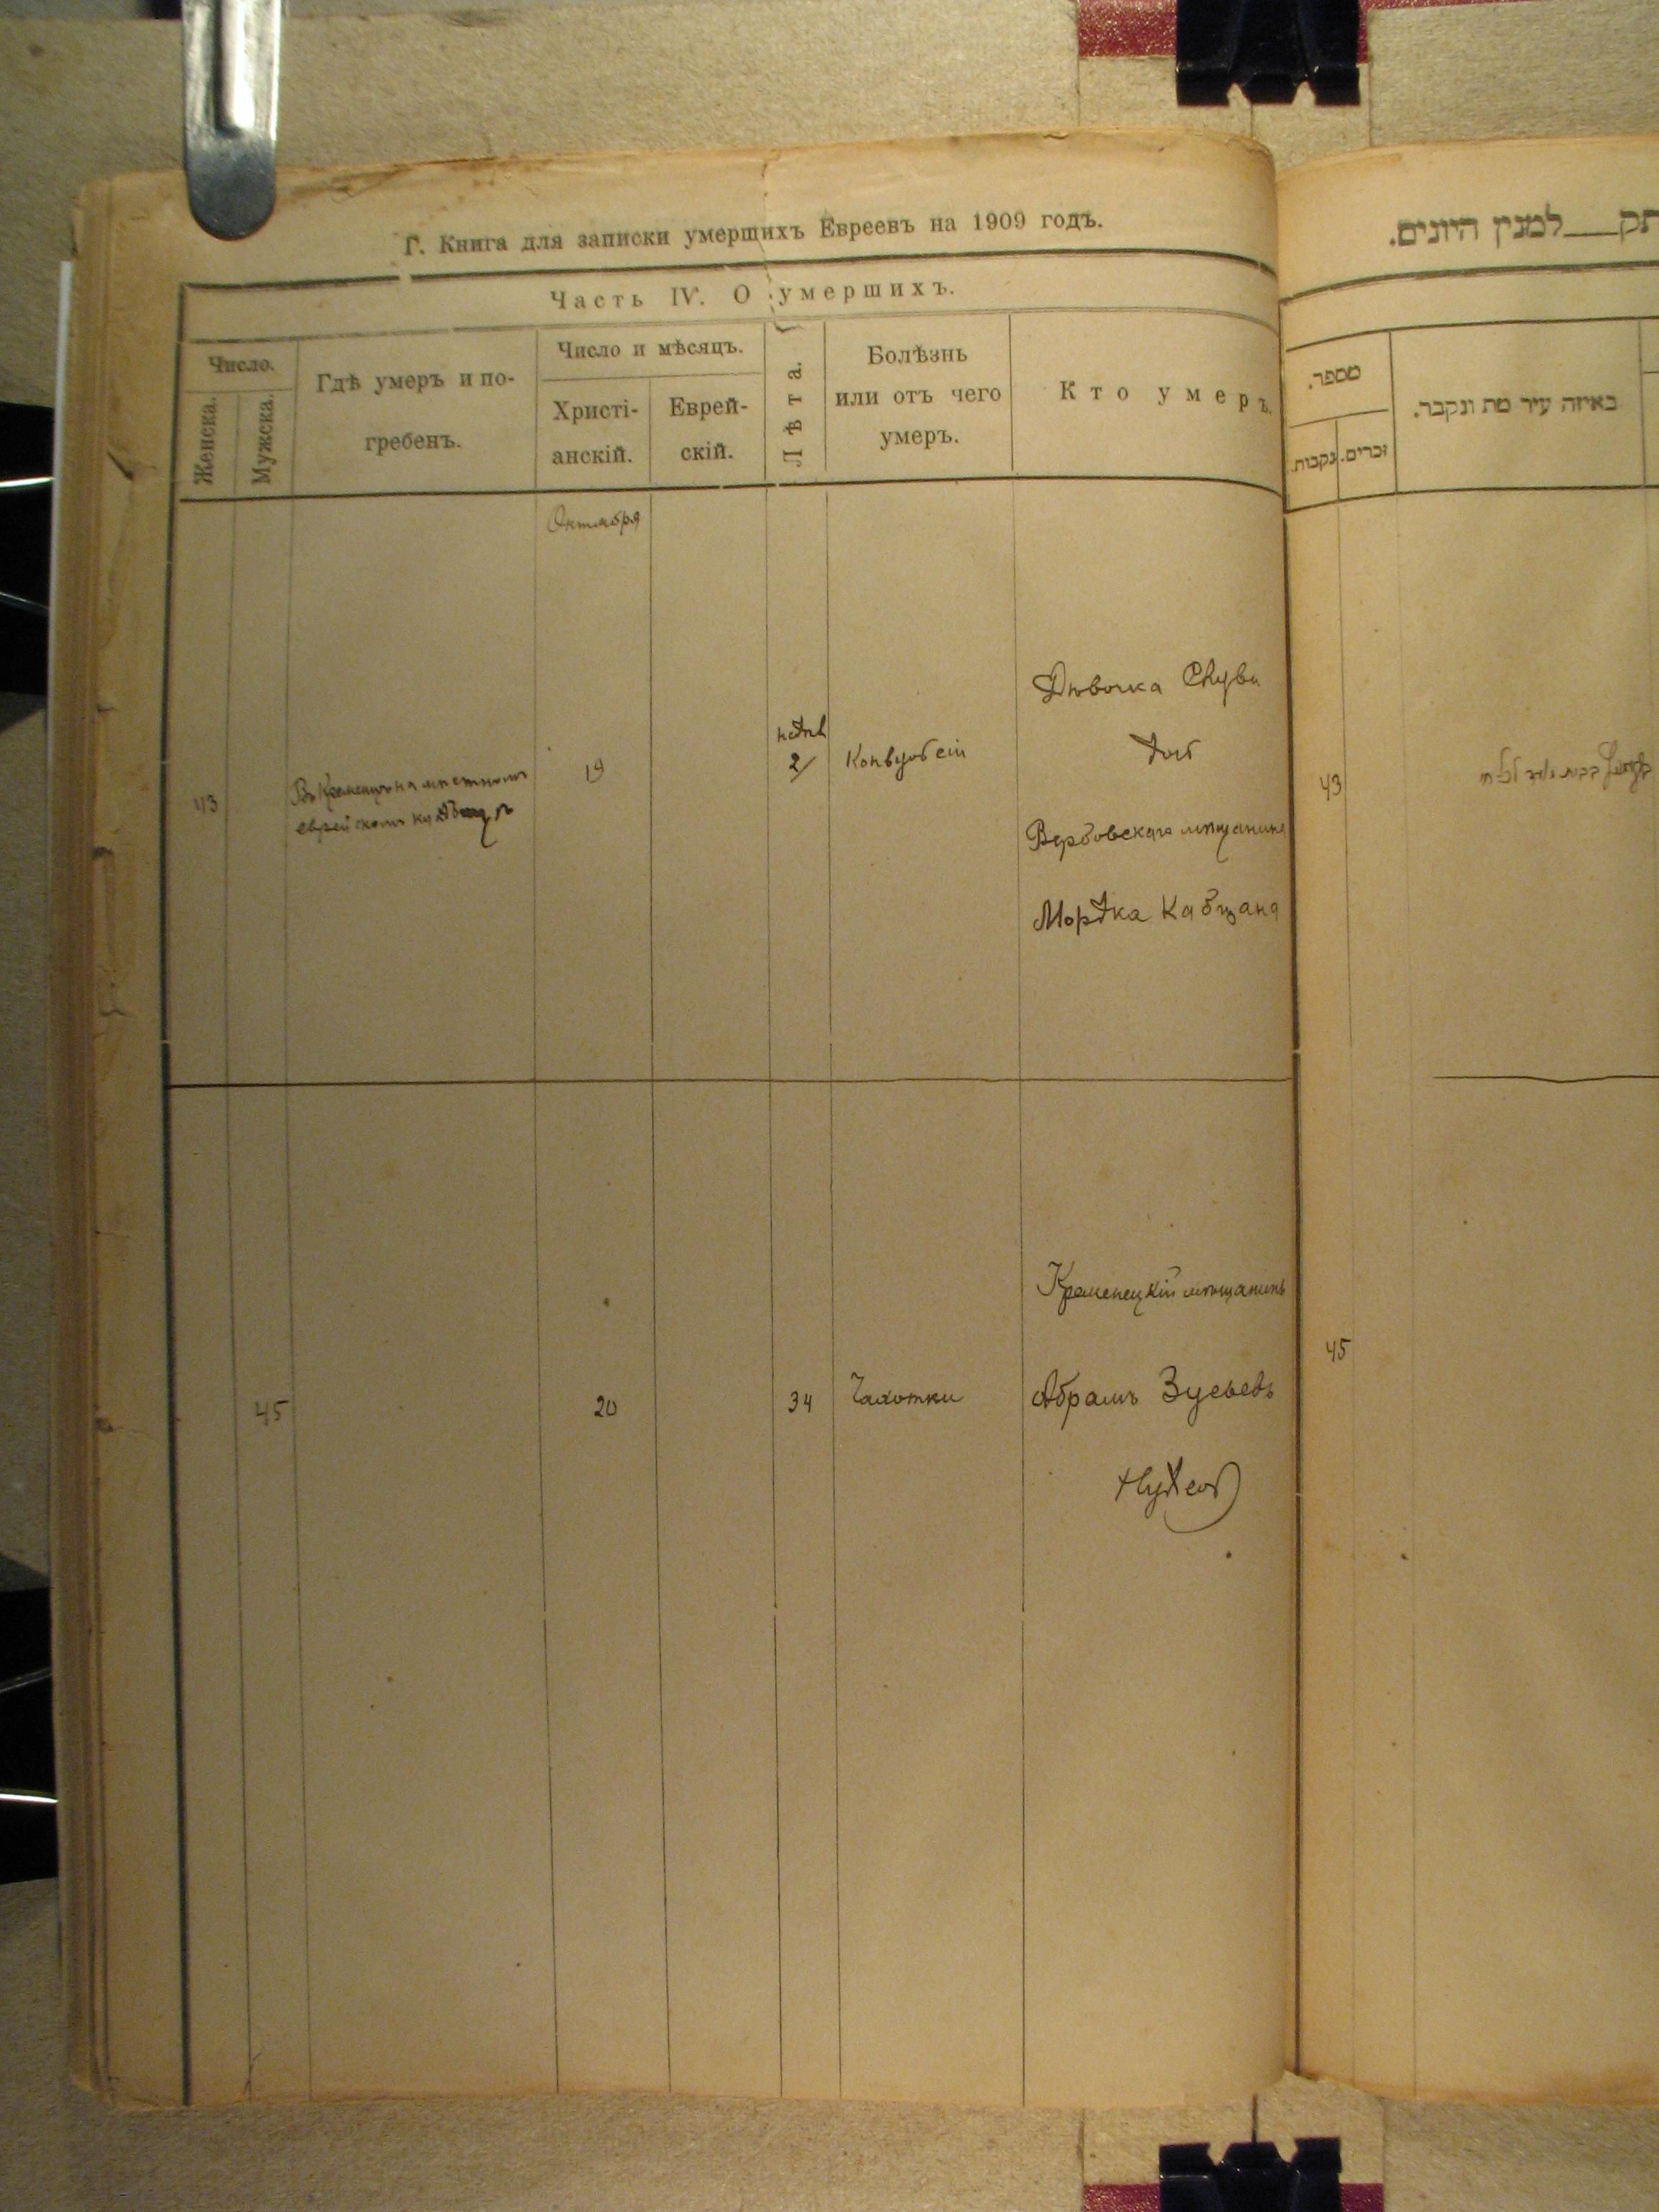 Г. Книга для записки умершихъ Евреевъ на 1909 годъ.
Часть IV. О умершихъ.
Число.
Женска.
Мужска.
Гдѣ умеръ и по-
гребенъ.
Число и мѣсяцъ.
Христі-
анскій.
Еврей-
скій.
Лѣта.
Болѣзнь
или отъ чего
умеръ.
Кто умеръ.
Октября
43
Въ Кременцѣ на мѣстномъ
еврейскомъ кладбищѣ
19
недѣл
2
Конвульсій
Дѣвочка
дочь
Вербовскаго мѣщанина
Мордка Кабцана
45
20
34
Чахотки
Кременецкій мѣщанинъ
Абрамъ Зусьевъ
תק למנין היונים.
מספר.
נקבות.
זכרים.
באיזה עיר מת ונקבר.
43
45